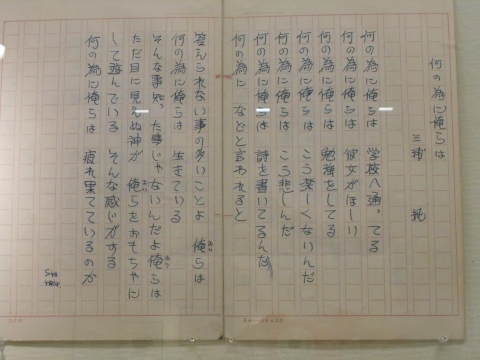 何の為に俺らは
三浦 純
何の為に俺らは 学校へ通ってる
何の為に俺らは 彼女がほしい
何の為に俺らは 勉強をしてる
何の為に俺らは こう楽しくないんだ
何の為に俺らは こう悲しんだ
何の為に俺らは 詩を書いてるんだ
何の為に などと言われると
答えられない事の多いことよ 俺らは
何の為に俺らは 生きている
そんな事知った事じゃないんだよ俺らは
ただ目に見えぬ神が 俺らをおもちゃに
して遊んでいる そんな感じがする
何の為に俺らは 疲れ果てているのか